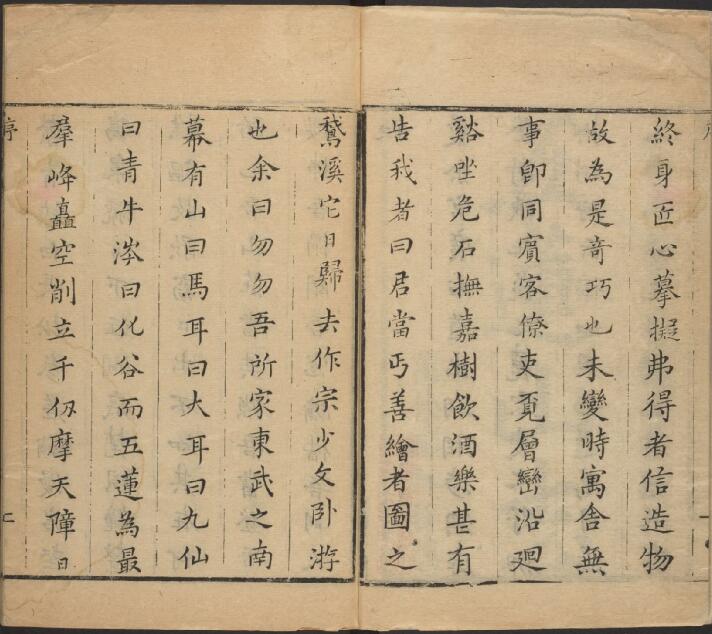 終身匠心摹擬弗得者信造物
故為是奇巧也未變時寓舍無
事卽同賓客僚吏覓層巒沿廻
谿坐危石撫嘉樹飲酒樂甚有
告我者曰君當丐善繪者圖之
鵞溪它日歸去作宗少文卧游
也余曰勿勿吾所家東武之南
幕有山曰馬耳曰大耳曰九仙
曰青牛涔曰化谷而五蓮為最
羣峰矗空削立千仞摩天障日
序